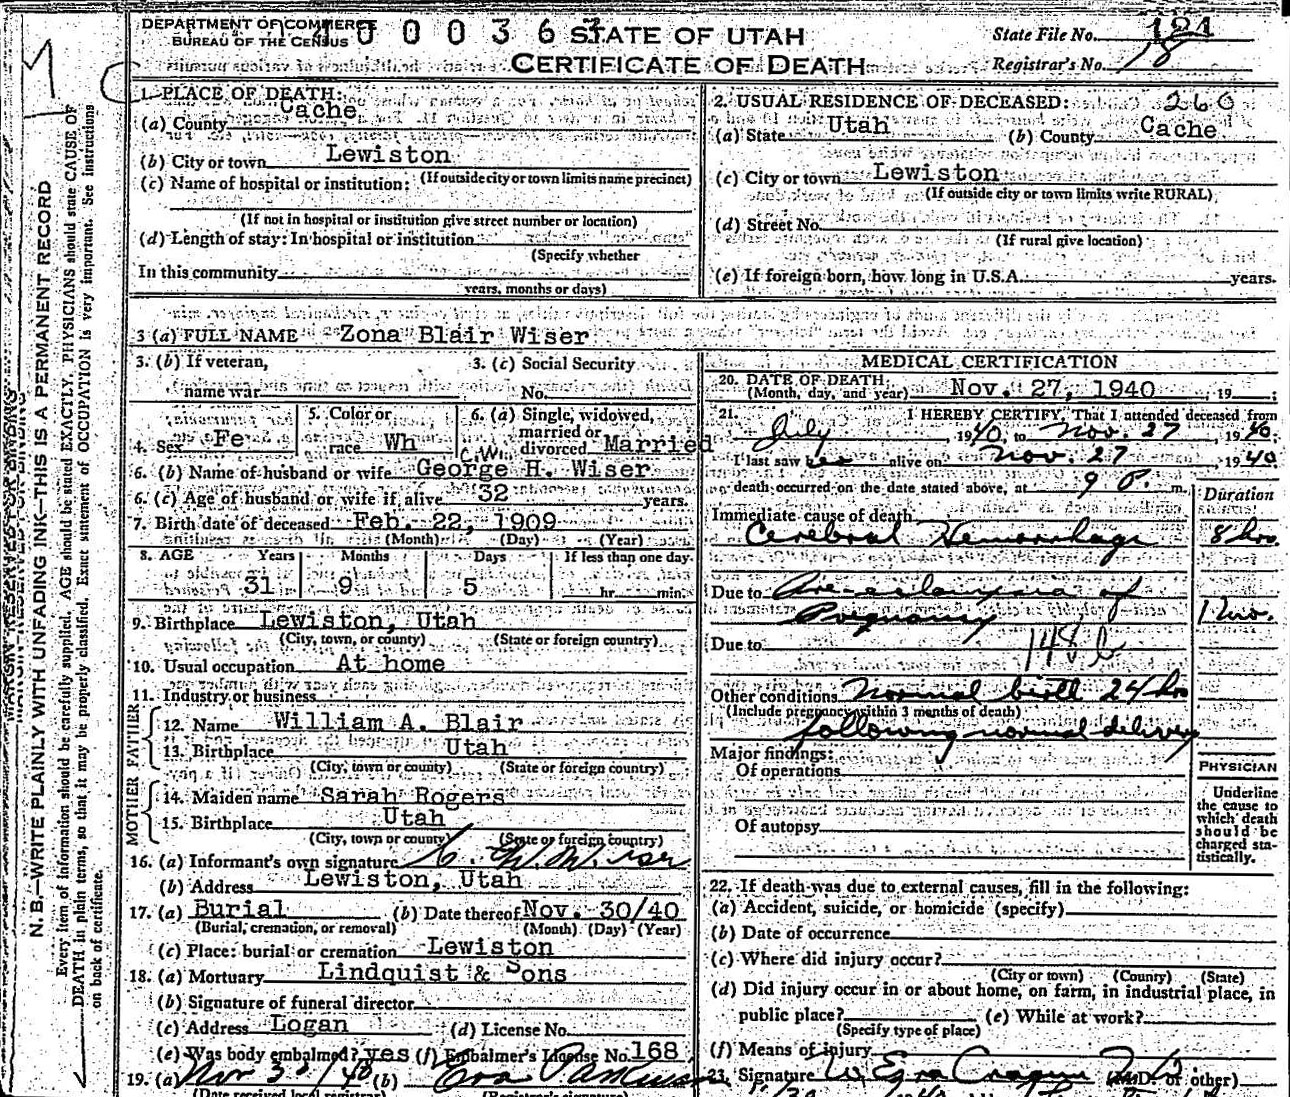 DEPARTMENT OF COMMERCE
BUREAU OF THE CENSUS
0 0 0 3 6
STATE OF UTAH
CERTIFICATE OF DEATH
State File No. 181
Registrar's No. 18
N. B.—WRITE PLAINLY WITH UNFADING INK—THIS IS A PERMANENT RECORD
Every item of information should be carefully supplied. AGE should be stated EXACTLY. PHYSICIANS should state CAUSE OF
DEATH in plain terms, so that it may be properly classified. Exact statement of OCCUPATION is very important. See instructions
on back of certificate.
1. PLACE OF DEATH:
(a) County Cache
(b) City or town Lewiston
(If outside city or town limits name precinct)
(c) Name of hospital or institution:
(If not in hospital or institution give street number or location)
(d) Length of stay: In hospital or institution
(Specify whether
In this community
years, months or days)
2. USUAL RESIDENCE OF DECEASED: 260
(a) State Utah (b) County Cache
(c) City or town Lewiston
(If outside city or town limits write RURAL)
(d) Street No.
(If rural give location)
(e) If foreign born, how long in U.S.A. years.
3 (a) FULL NAME Zona Blair Wiser
3. (b) If veteran,
name war
3. (c) Social Security
No.
4. Sex Fe
5. Color or
race Wh
6. (a) Single, widowed,
married or
divorced Married
6. (b) Name of husband or wife George H. Wiser
C. W.
6. (c) Age of husband or wife if alive 32 years.
7. Birth date of deceased Feb. 22, 1909
(Month) (Day) (Year)
8. AGE Years Months Days If less than one day
31 9 5 hr. min.
9. Birthplace Lewiston, Utah
(City, town, or county) (State or foreign country)
10. Usual occupation At home
11. Industry or business
FATHER
12. Name William A. Blair
13. Birthplace Utah
(City, town or county) (State or foreign country)
MOTHER
14. Maiden name Sarah Rogers
15. Birthplace Utah
(City, town or county) (State or foreign country)
16. (a) Informant's own signature C. W. Wiser
(b) Address Lewiston, Utah
17. (a) Burial (b) Date thereof Nov. 30/40
(Burial, cremation, or removal) (Month) (Day) (Year)
(c) Place: burial or cremation Lewiston
18. (a) Mortuary Lindquist & Sons
(b) Signature of funeral director
(c) Address Logan (d) License No.
(e) Was body embalmed? yes (f) Embalmer's License No. 168
19. (a) Nov 30/40 (b) Ora
(Date received local registrar) (Registrar's signature)
MEDICAL CERTIFICATION
20. DATE OF DEATH: Nov. 27, 1940, 19 ;
(Month, day, and year)
21. I HEREBY CERTIFY, That I attended deceased from
July, 1940, to Nov. 27, 1940;
I last saw her alive on Nov. 27, 1940
death occurred on the date stated above, at 9 P. m.
Duration
Immediate cause of death
Cerebral Hemorrhage 8 hrs.
Due to Pre-eclampsia of
Pregnancy 1 mo.
Due to 148 b
Other conditions Normal birth 24 hrs
(Include pregnancy within 3 months of death)
following normal delivery
Major findings:
Of operations
Of autopsy
PHYSICIAN
Underline
the cause to
which death
should be
charged sta-
tistically.
22. If death was due to external causes, fill in the following:
(a) Accident, suicide, or homicide (specify)
(b) Date of occurrence
(c) Where did injury occur?
(City or town) (County) (State)
(d) Did injury occur in or about home, on farm, in industrial place, in
public place? (e) While at work?
(Specify type of place)
(f) Means of injury
23. Signature W. Ezra Cragun M.D. (M.D. or other)